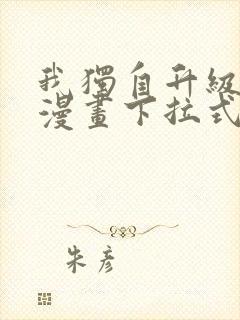 我獨自升級
漫畫下拉式
朱彥